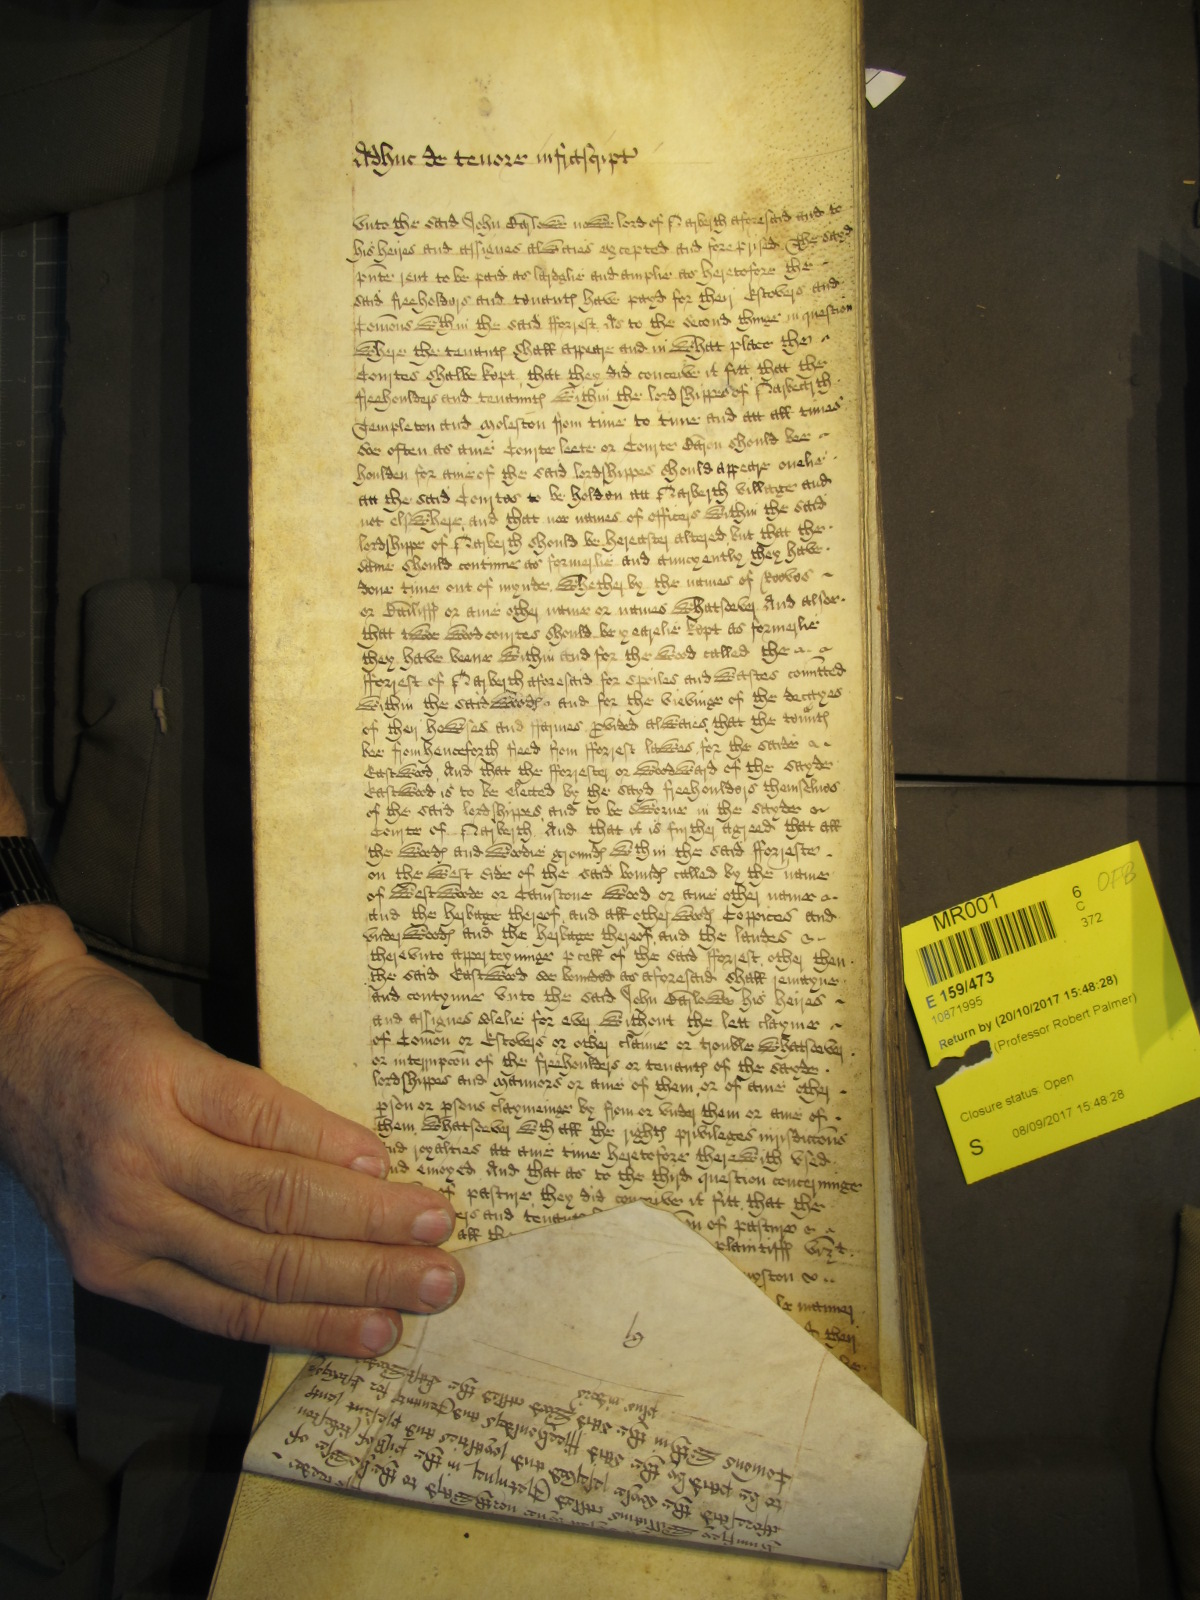 Adhuc de tenore infrascript
Unto the said John Barlowe nowe lord of Narberth aforesaid and to
his heires and assignes alwaies excepted and foreprised The sayd
pnte rent to be paid as lardglie and amplie as heretofore the
said freeholdors and tenants have payd for their Estovers and
Comons within the said fforrest. As to the second thinge in question
Where the tenants shall appeare and in what place the
Courtes shalbe kept, that they did conceive it fitt that the
freehoulders and tenaunts within the lordshippes of Narberth
Templeton and Moleston from time to time and att all times
soe often as anie Courte leete or Courte Baron should bee
houlden for anie of the said lordshippes should appeare onelie
att the said Courtes to be holden att Narberth village and
not elswhere, and that noe names of officers within the said
lordshippe of Narberth should be hereafter altered but that the
same should continue as formerlie and auncyently they have
done time out of mynde. Whether by the names of Reeves
or Bailiffs or anie other name or names whatsoever. And alsoe
that twoe woodcourtes should be yearelie kept as formerlie
they have beene within and for the wood called the
fforrest of Narberth aforesaid for spoiles and wastes comitted
within the said woods and for the viewinge of the decayes
of their howses and ffarmes provided alwaies, that the tennts
bee from henceforth freed from fforrest lawes, for the saide
Eastwood, And that the fforrester or woodward of the sayde
Eastwood is to be elected by the sayd freehouldors themselves
of the said lordshippes, and to be sworne in the sayde
Courte of Narberth. And that it is further agreed that all
the woods and woodie grounds within the said fforreste
on the West side of the said bounds called by the name
of Westwoode or Canstone wood or anie other name
and the herbage thereof, and all other woods Coppices and
underwoods and the herbage thereof, and the landes
thereunto apperteyninge pcell of the said fforrest, other then
the said Eastwood soe bounded as aforesaid shall remayne
and contynue unto the said John Barlowe his heires
and assignes solelie for ever without the lett clayme
of Comon or Estovers or other claime or trouble whatsoever
or interupcon of the freehoulders or tenants of the sayde
lordshippes and Mannors or anie of them, or of anie other
pson or psons claymeinge by from or under them or anie of
them whatsoever with all the rights privileges iurisdiccons
and royalties att anie time heretofore therewith used
and enioyed And that as to the third question concerninge
of pasture, they did conceive it fitt, that the
ers and tenants on of pasture
all the plaintiff vizt.
yston
le manner
their
MR001
6
C
372
OFB
E 159/473
10871995
Return by (20/10/2017 15:48:28)
(Professor Robert Palmer)
Closure status. Open
S
08/09/2017 15:48:28